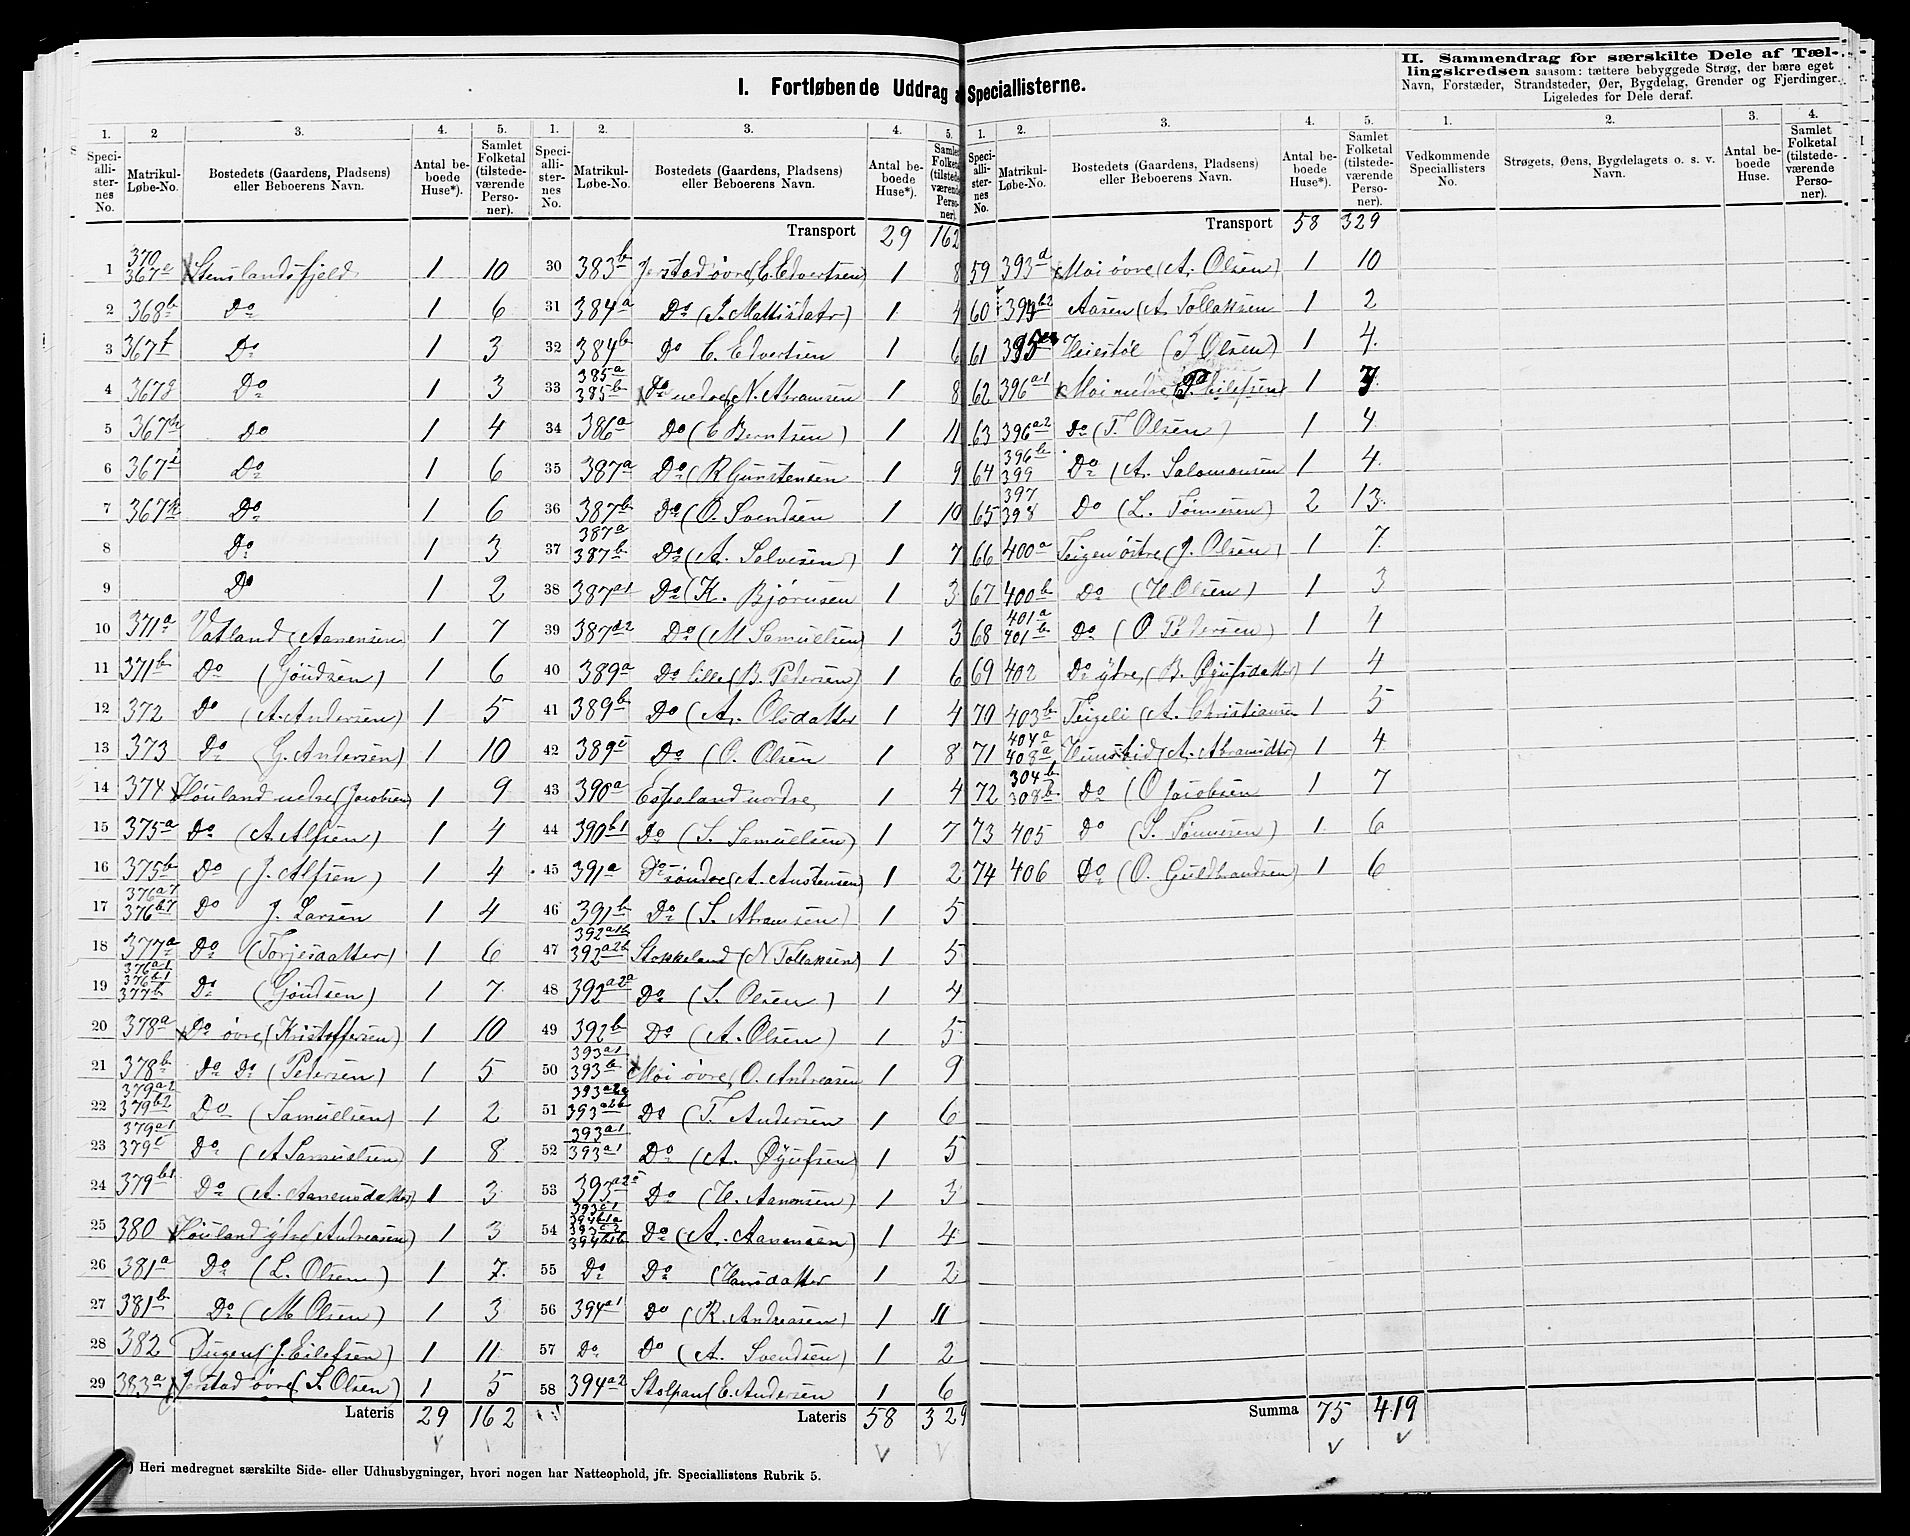 I. Fortløbende Uddrag a Speciallisterne.
II. Sammendrag for særskilte Dele af Tæl-
lingskredsen saasom: tættere bebyggede Strøg, der bære eget
Navn, Forstæder, Strandsteder, Øer, Bygdelag, Grender og Fjerdinger.
Ligeledes for Dele deraf.
1. 2 3. 4. 5.
Speci-alli-ster-nes No. Matrikul-Løbe-No. Bostedets (Gaardens, Pladsens) eller Beboerens Navn. Antal be-boede Huse*). Samlet Folketal (tilstede-værende Perso-ner).
1 370 367e Stenslandsfjeld 1 10
2 368b Do 1 6
3 367f Do 1 3
4 367g Do 1 3
5 367h Do 1 4
6 367i Do 1 6
7 367k Do 1 6
8 Do 1 3
9 Do 1 2
10 371a Vatland (Aanensen 1 7
11 371b Do (Gjøudsen) 1 6
12 372 Do (A. Andersen) 1 5
13 373 Do (G. Andersen) 1 10
14 374 Høuland nedre (Jacobsen) 1 9
15 375a Do (A. Alfsen) 1 4
16 375b Do (J. Alfsen) 1 4
17 376a7 376b7 Do J. Larsen 1 4
18 377a Do (Torjesdatter) 1 6
19 376a1 376b1 377b Do (Gjøudsen) 1 7
20 378a Do øvre (Kristoffersen) 1 10
21 378b Do Do (Petersen) 1 5
22 379a2 379b2 Do (Samuelsen) 1 2
23 379a1 379c Do (A Samuelsen) 1 8
24 379b1 Do (A. Aanensdatter) 1 3
25 380 Høuland ytre (Andreasen) 1 3
26 381a Do (L. Olsen) 1 7
27 381b Do (M Olsen) 1 3
28 382 Dugen (J. Eilefsen) 1 11
29 383a Jerstad øvre (S. Olsen) 1 5
Lateris 29 162
1. 2. 3. 4. 5.
Speci-alli-ster-nes No. Matrikul-Løbe-No. Bostedets (Gaardens, Pladsens) eller Beboerens Navn. Antal be-boede Huse*). Samlet Folketal (tilstede-værende Perso-ner).
Transport 29 162
30 383b Jerstad øvre (C. Edvertsen) 1 8
31 384a Do (J. Mattisdatr) 1 4
32 384b Do C. Edvertsen 1 6
33 385a 385b Do nedre (N. Abramsen 1 8
34 386a Do (E Berntsen) 1 11
35 387a Do (R Gunstensen 1 9
36 387b Do (O. Svendsen 1 10
37 387a 387b Do (A. Salvesen) 1 7
38 387a1 Do (K. Bjørnsen 1 3
39 387d2 Do (M Samuelsen) 1 3
40 389a Do lille (B. Petersen) 1 6
41 389b Do (A. Olsdatter 1 4
42 389c Do (O. Olsen 1 8
43 390a Espeland nordre 1 4
44 390b1 Do (S. Samuelsen) 1 7
45 391a Do søndre (A. Austensen) 1 2
46 391b Do (S. Abramsen) 1 5
47 392a1b 392a2b Stokkeland (N Tollaksen) 1 5
48 392a2a Do (S. Olsen) 1 4
49 392b Do (A. Olsen) 1 5
50 393a1 393b Moi øvre (O. Andreasen 1 9
51 393a2a 393a2b Do (T. Andersen 1 6
52 393a1 393a1 Do (A. Øyufsen) 1 5
53 393a2c Do (H. Aanonsen) 1 3
54 393c1 394b1a 393c2 394b1b Do (A. Aanensen) 1 4
55 Do Do (Hansdatter 1 2
56 394a1 Do (R. Andreasen) 1 11
57 Do Do (A. Svendsen) 1 2
58 394a2 Stolpan (E. Andersen 1 6
Lateris 58 329
1. 2. 3. 4. 5.
Speci-alli-ster-nes No. Matrikul-Løbe-No. Bostedets (Gaardens, Pladsens) eller Beboerens Navn. Antal be-boede Huse*). Samlet Folketal (tilstede-værende Perso-ner).
Transport 58 329
59 393d Moi øvre (A. Olsen) 1 10
60 394b2 Aasen (A. Tollaksen 1 2
61 395 Heiestøl (T Olsen) 1 4
62 396a1 Moi nedre (P. Eilefsen) 1 7
63 396a2 Do (T. Olsen) 1 4
64 396b 399 Do (A. Salomonsen 1 4
65 397 398 Do (L. Tønnesen) 2 13
66 400a Teigen østre (J. Olsen) 1 7
67 400b Do (H Olsen) 1 3
68 401a 401b Do (O Pedersen) 1 4
69 402 Do ytre (B. Øyufsdatter) 1 4
70 403b Teigeli (A. Christiansen 1 5
71 404a 408a Hunsbid (A. Abramdtr) 1 4
72 304b 308b Do (O Jacobsen 1 7
73 405 Do (S. Tønnesen) 1 6
74 406 Do (O. Guldbrandsen) 1 6
Summa 75 419
1. 2. 3. 4.
Vedkommende Speciallisters No. Strøgets, Øens, Bygdelagets o. s. v. Navn. Antal be-boede Huse. Samlet Folketal (tilstede-værende Perso-ner).
*) Heri medregnet særskilte Side- eller Udhusbygninger, hvori nogen har Natteophold, jfr. Speciallistens Rubrik 5.